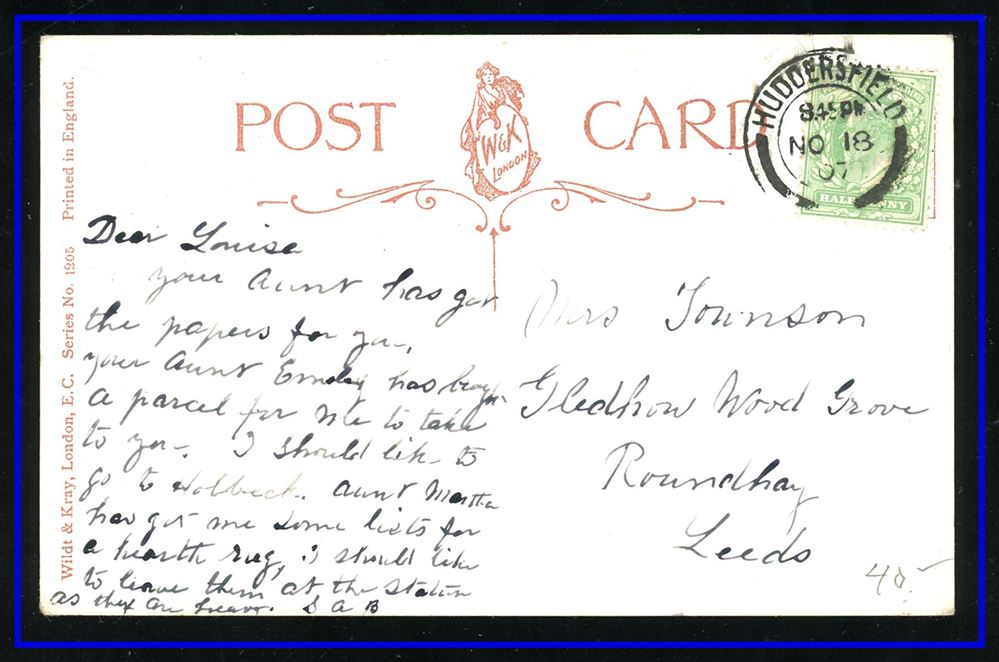 POST CARD
W&K
LONDON
HUDDERSFIELD
8.45 PM
NO 18
07
HALFPENNY
Wildt & Kray, London, E.C. Series No. 1205 Printed in England.
Dear Louisa
your Aunt has got
the papers for you,
your Aunt has
a parcel for me to take
to you. I should like to
go to Holbeck. Aunt Martha
has got me some lists for
a hearth rug, I should like
to leave them at the station
as they are heavy. S A B
Mrs Townson
Gledhow Wood Grove
Roundhay
Leeds
40